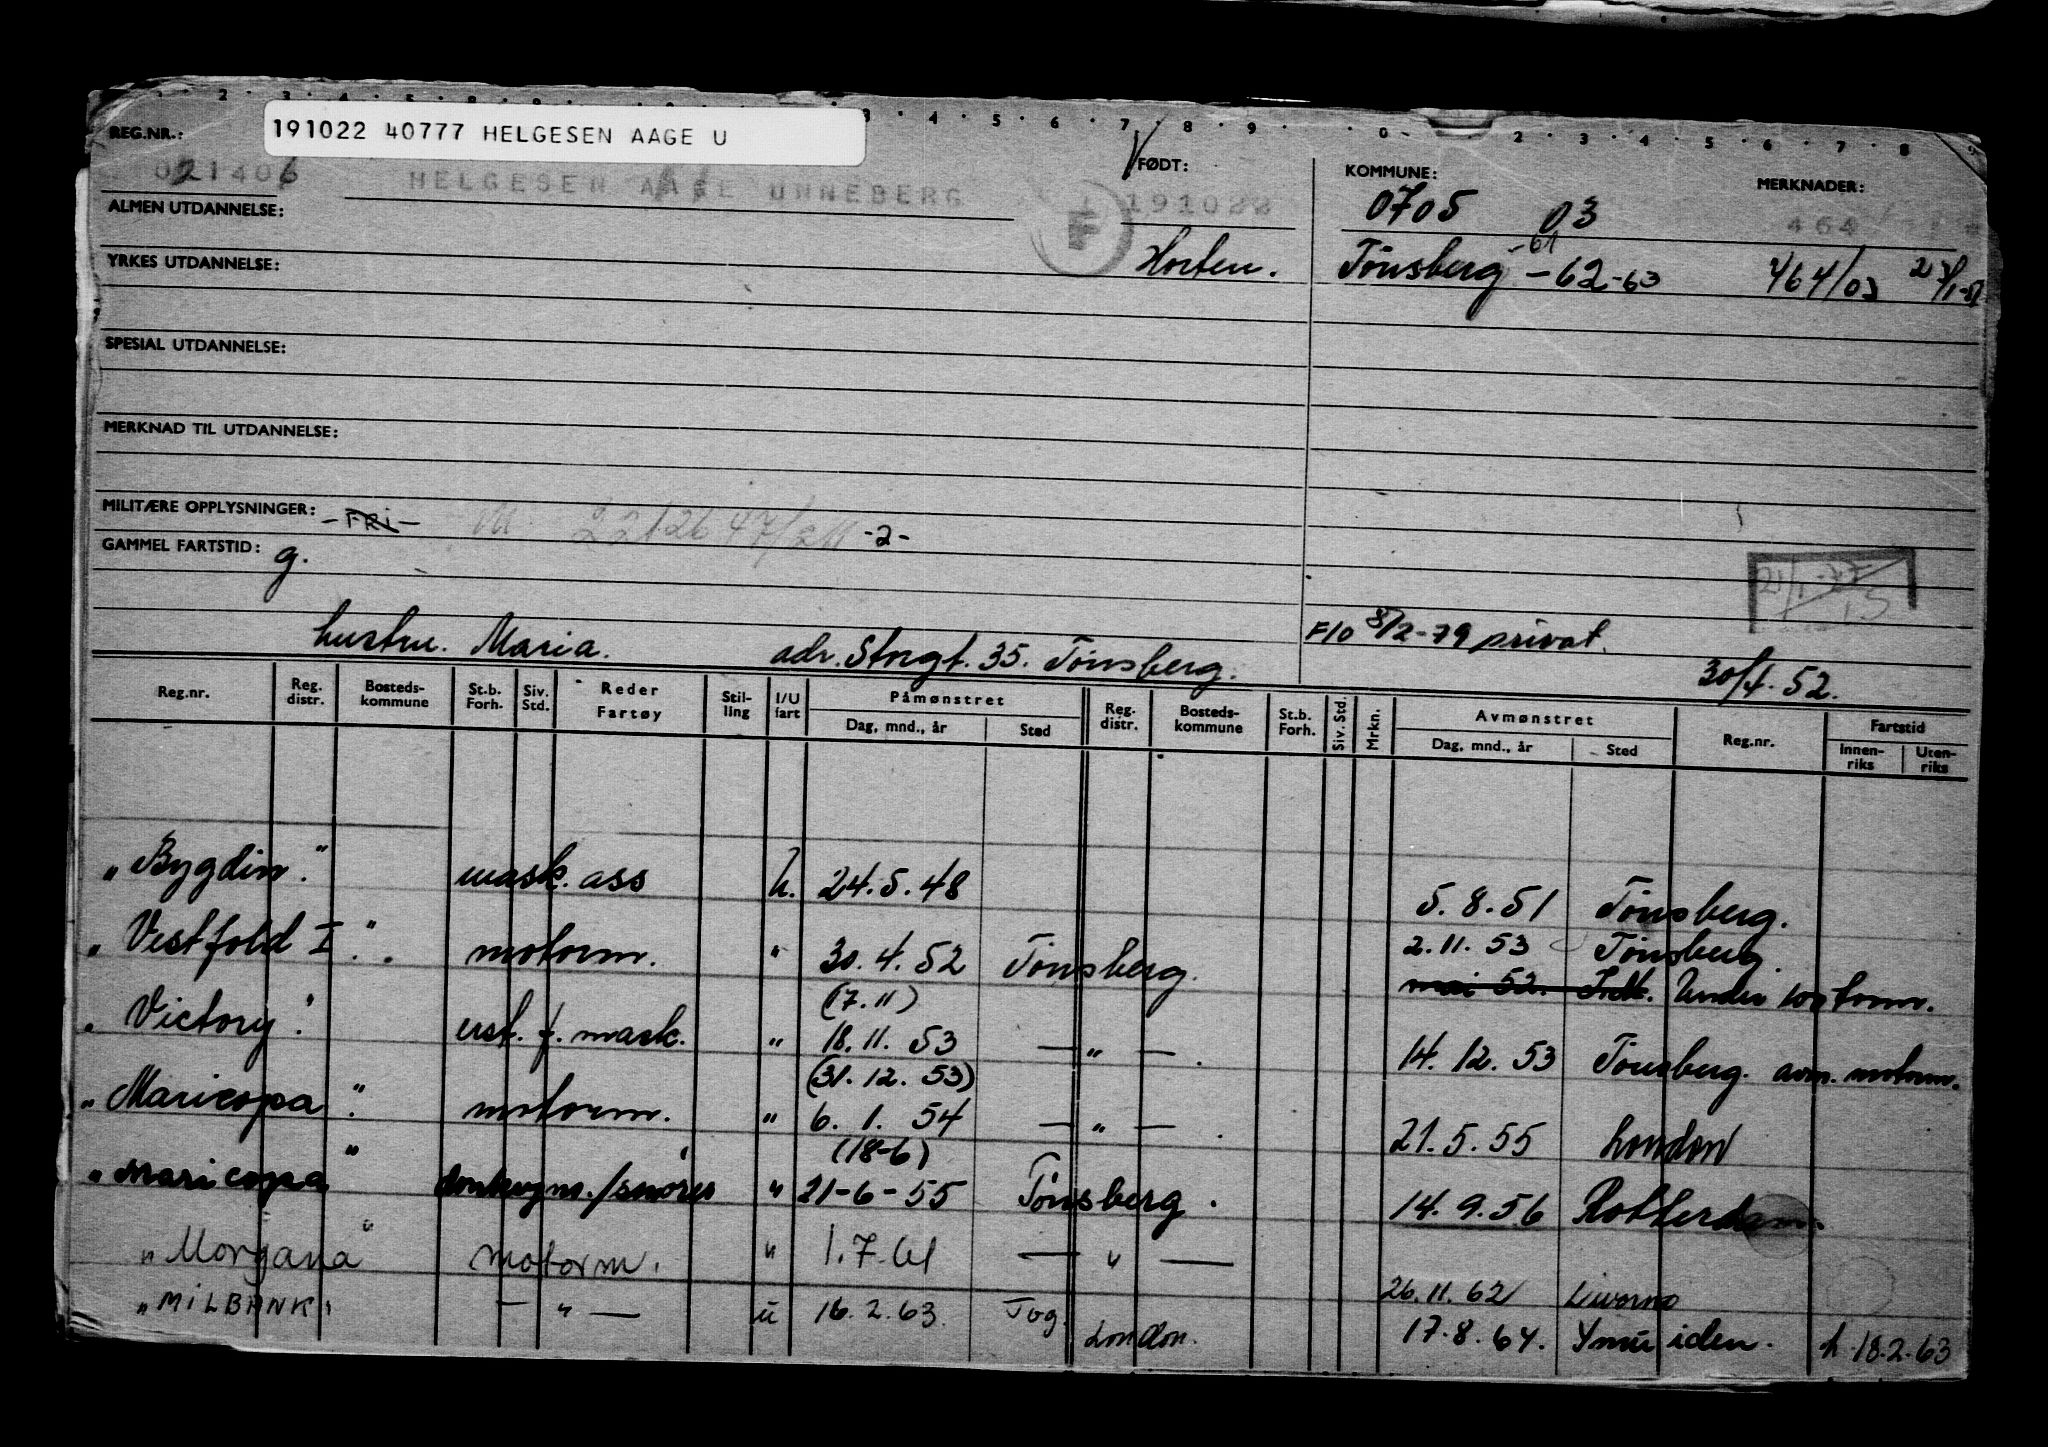 191022 40777 HELGESEN AAGE U
REG.NR.: FØDT: KOMMUNE: MERKNADER:
021406 HELGESEN AAGE UNNEBERG F 191022 0705 03 464
ALMEN UTDANNELSE:
Horten. Tönsberg -61 -62-63 464/03
YRKES UTDANNELSE:
SPESIAL UTDANNELSE:
MERKNAD TIL UTDANNELSE:
MILITÆRE OPPLYSNINGER: -FRI- -2-
GAMMEL FARTSTID: g.
hustru. Maria. adr. Storgt. 35. Tönsberg. F/O 8/2-79 privat.
30/4. 52.
Reg.nr. Reg. distr. Bosteds-kommune St.b. Forh. Siv. Std. Reder Fartøy Stil-ling I/U fart Påmønstret Dag, mnd., år Sted Reg. distr. Bosteds-kommune St.b. Forh. Siv. Std. Mrkn. Avmønstret Dag, mnd., år Sted Reg.nr. Fartstid Innen-riks Uten-riks
"Bygdin." mask. ass u. 24.5.48 5.8.51 Tönsberg.
"Vestfold I". motorm. " 30.4.52 Tönsberg. 2.11.53 Tönsberg.
mai 52. Under
(7.11)
"Victory". ust. f. mask. " 18.11.53 — " — . 14.12.53 Tönsberg. avm. motorm.
(31.12.53)
"Maricopa". motorm. " 6.1.54 — " — . 21.5.55 London
(18-6)
"Maricopa" donkeym./smører " 21-6-55 Tönsberg. 14.9.56 Rotterdam.
"Morgana" motorm. " 1.7.61 — " — 26.11.62 Livorno
"MILBANK" — " — u 16.2.63. Tbg. London. 17.8.64. Ymuiden. h. 18.2.63